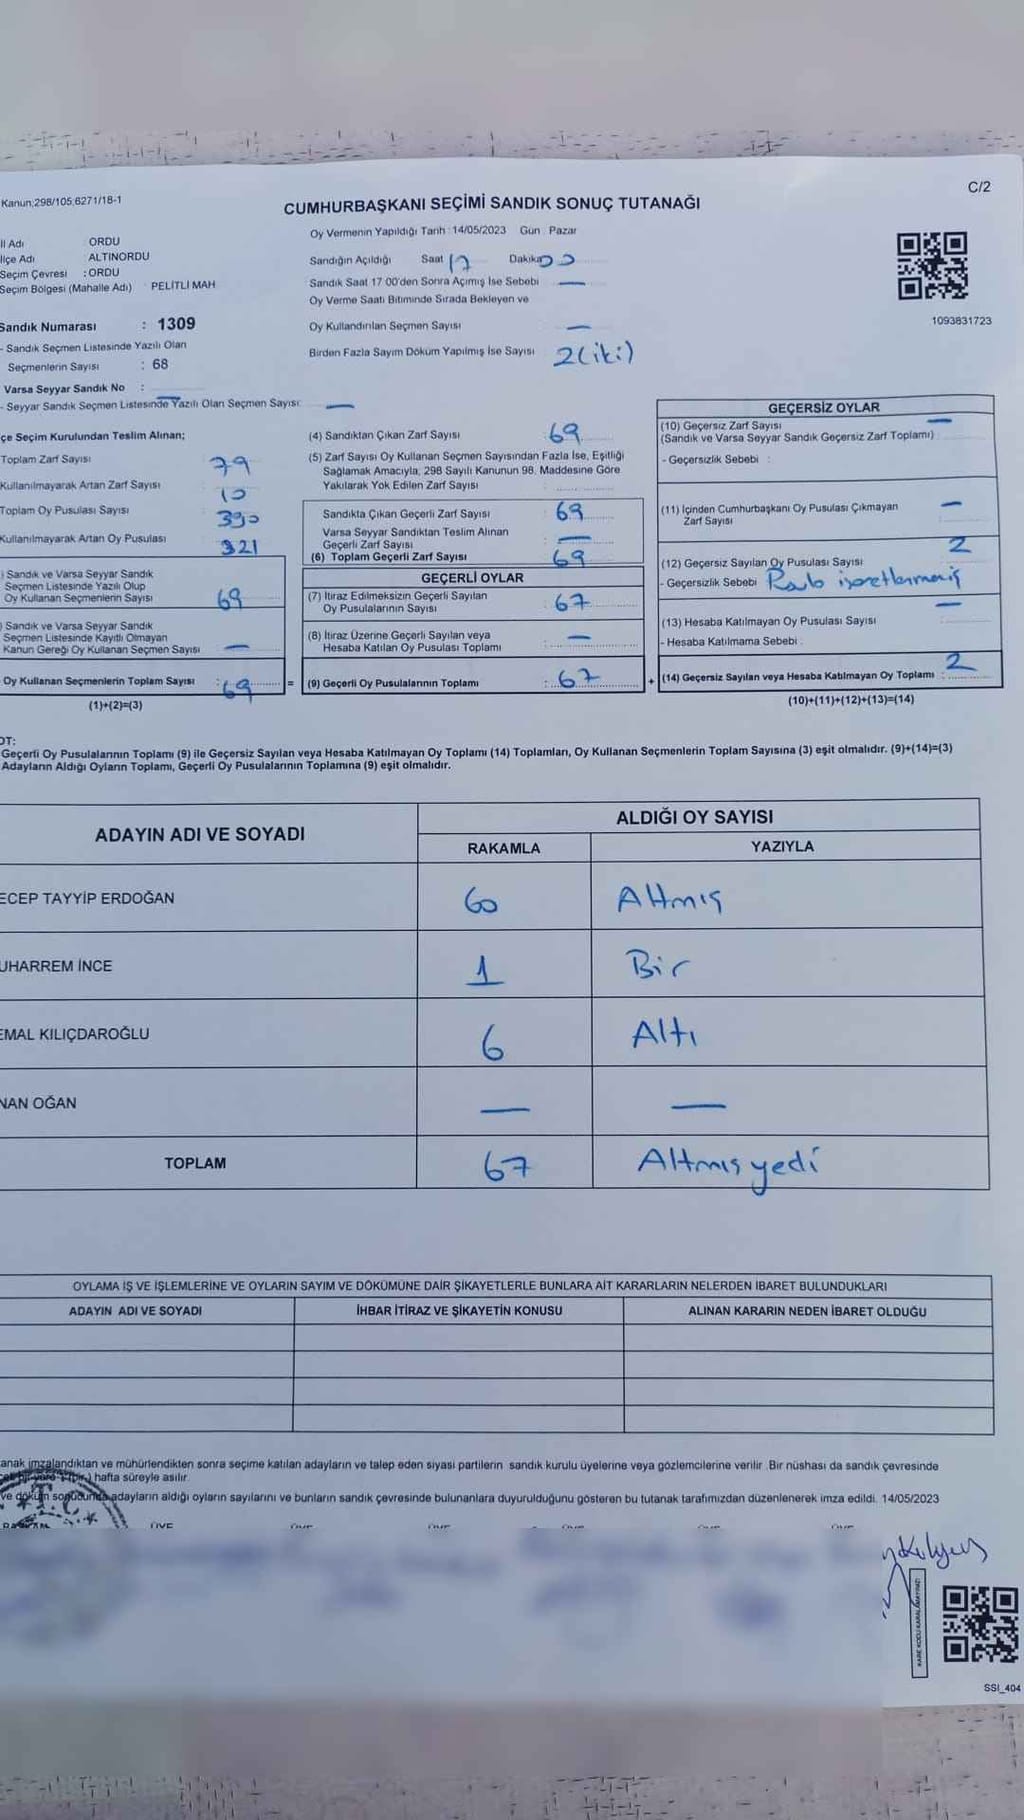 C/2
Kanun;298/105;6271/18-1
CUMHURBAŞKANI SEÇİMİ SANDIK SONUÇ TUTANAĞI
Oy Vermenin Yapıldığı Tarih : 14/05/2023 Gün : Pazar
İl Adı ORDU
lçe Adı ALTINORDU
Seçim Çevresi : ORDU
Seçim Bölgesi (Mahalle Adı) PELİTLİ MAH
Sandık Numarası : 1309
- Sandık Seçmen Listesinde Yazılı Olan
Seçmenlerin Sayısı : 68
Varsa Seyyar Sandık No :
- Seyyar Sandık Seçmen Listesinde Yazılı Olan Seçmen Sayısı: —
Sandığın Açıldığı Saat 17 Dakika 00
Sandık Saat 17.00'den Sonra Açımış İse Sebebi —
Oy Verme Saati Bitiminde Sırada Bekleyen ve
Oy Kullandırılan Seçmen Sayısı —
Birden Fazla Sayım Döküm Yapılmış İse Sayısı 2(iki)
1093831723
çe Seçim Kurulundan Teslim Alınan;
Toplam Zarf Sayısı 79
Kullanılmayarak Artan Zarf Sayısı 10
Toplam Oy Pusulası Sayısı 390
Kullanılmayarak Artan Oy Pusulası 321
) Sandık ve Varsa Seyyar Sandık
Seçmen Listesinde Yazılı Olup
Oy Kullanan Seçmenlerin Sayısı 69
) Sandık ve Varsa Seyyar Sandık
Seçmen Listesinde Kayıtlı Olmayan
Kanun Gereği Oy Kullanan Seçmen Sayısı —
Oy Kullanan Seçmenlerin Toplam Sayısı : 69 =
(1)+(2)=(3)
(4) Sandıktan Çıkan Zarf Sayısı 69
(5) Zarf Sayısı Oy Kullanan Seçmen Sayısından Fazla İse, Eşitliği
Sağlamak Amacıyla, 298 Sayılı Kanunun 98. Maddesine Göre
Yakılarak Yok Edilen Zarf Sayısı
Sandıkta Çıkan Geçerli Zarf Sayısı 69
Varsa Seyyar Sandıktan Teslim Alınan
Geçerli Zarf Sayısı —
(6) Toplam Geçerli Zarf Sayısı 69
GEÇERLİ OYLAR
(7) İtiraz Edilmeksizin Geçerli Sayılan
Oy Pusulalarının Sayısı : 67
(8) İtiraz Üzerine Geçerli Sayılan veya
Hesaba Katılan Oy Pusulası Toplamı —
(9) Geçerli Oy Pusulalarının Toplamı : 67 +
GEÇERSİZ OYLAR
(10) Geçersiz Zarf Sayısı —
(Sandık ve Varsa Seyyar Sandık Geçersiz Zarf Toplamı)
- Geçersizlik Sebebi :
(11) İçinden Cumhurbaşkanı Oy Pusulası Çıkmayan —
Zarf Sayısı
(12) Geçersiz Sayılan Oy Pusulası Sayısı 2
- Geçersizlik Sebebi işaretlenmemiş
(13) Hesaba Katılmayan Oy Pusulası Sayısı —
- Hesaba Katılmama Sebebi :
(14) Geçersiz Sayılan veya Hesaba Katılmayan Oy Toplamı : 2
(10)+(11)+(12)+(13)=(14)
OT:
Geçerli Oy Pusulalarının Toplamı (9) ile Geçersiz Sayılan veya Hesaba Katılmayan Oy Toplamı (14) Toplamları, Oy Kullanan Seçmenlerin Toplam Sayısına (3) eşit olmalıdır. (9)+(14)=(3)
Adayların Aldığı Oyların Toplamı, Geçerli Oy Pusulalarının Toplamına (9) eşit olmalıdır.
ADAYIN ADI VE SOYADI ALDIĞI OY SAYISI
RAKAMLA YAZIYLA
ECEP TAYYİP ERDOĞAN 60 Altmış
UHARREM İNCE 1 Bir
EMAL KILIÇDAROĞLU 6 Altı
NAN OĞAN — —
TOPLAM 67 Altmış yedi
OYLAMA İŞ VE İŞLEMLERİNE VE OYLARIN SAYIM VE DÖKÜMÜNE DAİR ŞİKAYETLERLE BUNLARA AİT KARARLARIN NELERDEN İBARET BULUNDUKLARI
ADAYIN ADI VE SOYADI İHBAR İTİRAZ VE ŞİKAYETİN KONUSU ALINAN KARARIN NEDEN İBARET OLDUĞU
anak imzalandıktan ve mühürlendikten sonra seçime katılan adayların ve talep eden siyasi partilerin sandık kurulu üyelerine veya gözlemcilerine verilir. Bir nüshası da sandık çevresinde
hafta süreyle asılır.
ve döküm sonucunda adayların aldığı oyların sayılarını ve bunların sandık çevresinde bulunanlara duyurulduğunu gösteren bu tutanak tarafımızdan düzenlenerek imza edildi. 14/05/2023
T.C.
BAŞKAN ÜYE ÜYE ÜYE ÜYE ÜYE ÜYE
KARE KODU KARALAMAYINIZ!
SSI_404